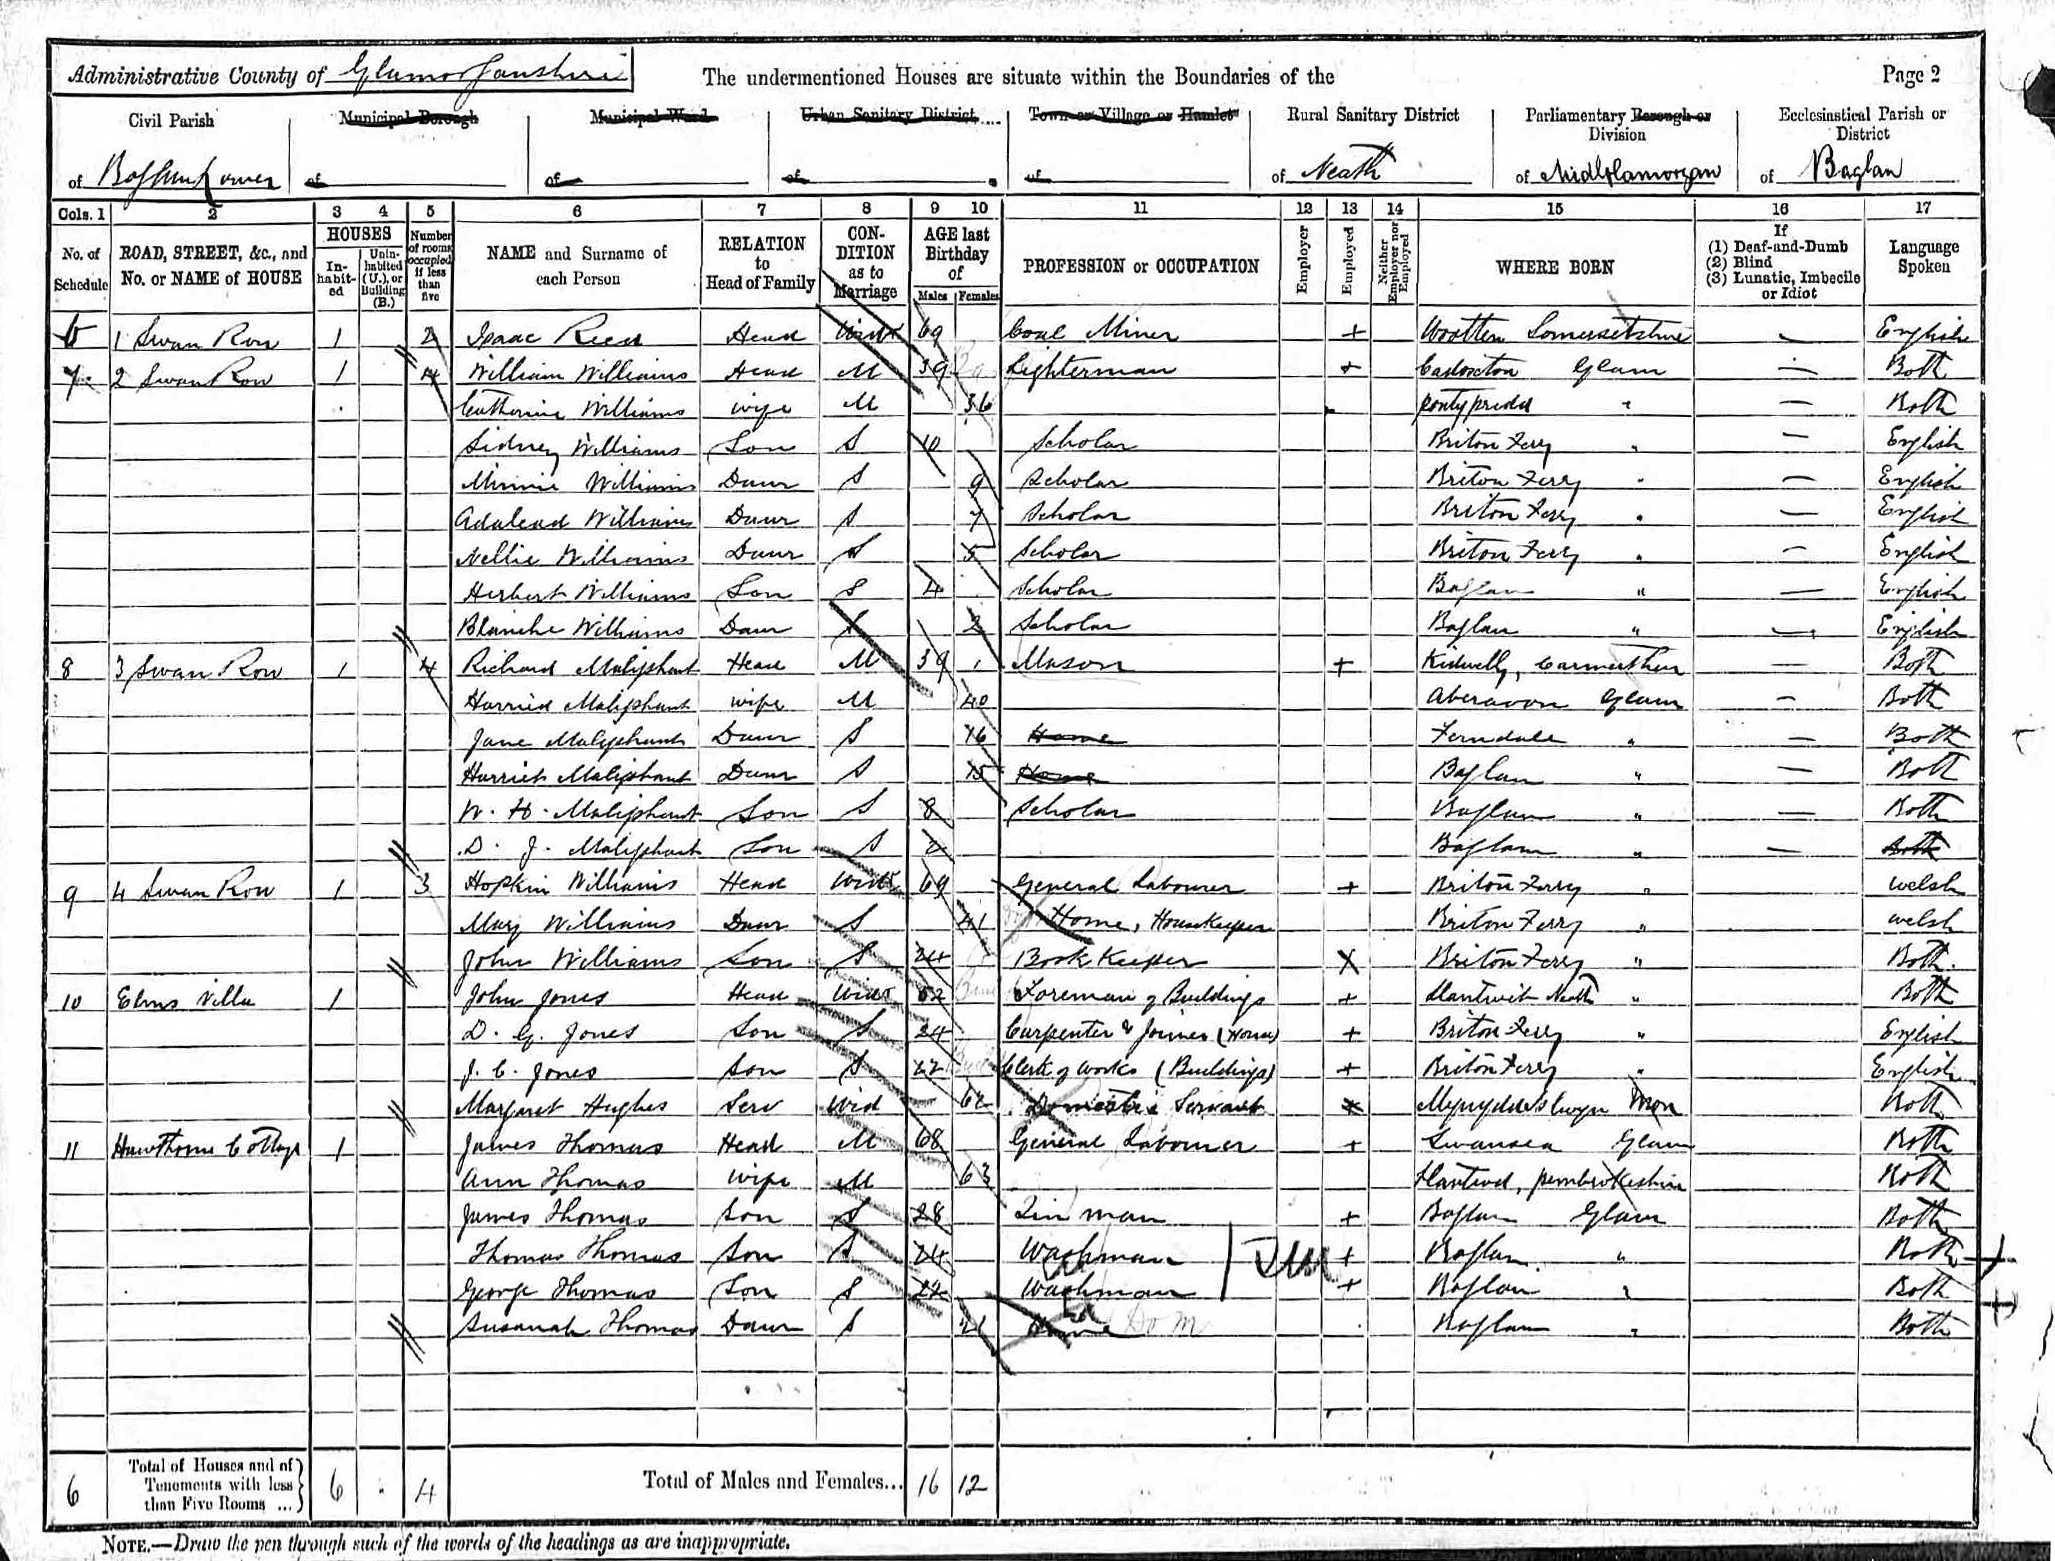 Administrative County of Glamorganshire The undermentioned Houses are situate within the Boundaries of the Page 2
Civil Parish Municipal Borough Municipal Ward Urban Sanitary District Town or Village or Hamlet Rural Sanitary District Parliamentary Borough or Division Ecclesiastical Parish or District
of Baglan Lower of of of of of Neath of Mid Glamorgan of Baglan
Cols. 1 2 3 4 5 6 7 8 9 10 11 12 13 14 15 16 17
No. of Schedule ROAD, STREET, &c., and No. or NAME of HOUSE HOUSES Inhabited Uninhabited (U.), or Building (B.) Number of rooms occupied if less than five NAME and Surname of each Person RELATION to Head of Family CONDITION as to Marriage AGE last Birthday of Males Females PROFESSION or OCCUPATION Employer Employed Neither Employer nor Employed WHERE BORN If (1) Deaf-and-Dumb (2) Blind (3) Lunatic, Imbecile or Idiot Language Spoken
6 1 Swan Row 1 2 Isaac Reed Head Widr 69 Coal Miner + Wootten Somersetshire English
7 2 Swan Row 1 4 William Williams Head M 39 Lighterman + Cadoxton Glam — Both
Catherine Williams wife M 36 pontypridd " — Both
Sidney Williams Son S 10 Scholar Briton Ferry " — English
Minnie Williams Daur S 9 Scholar Briton Ferry " — English
Adalead Williams Daur S 7 Scholar Briton Ferry " — English
Nellie Williams Daur S 5 Scholar Briton Ferry " — English
Herbert Williams Son S 4 Scholar Baglan " — English
Blanche Williams Daur S 2 Scholar Baglan " — English
8 3 Swan Row 1 4 Richard Maliphant Head M 39 Mason + Kidwelly, Carmarthen — Both
Harried Maliphant wife M 40 Aberavon Glam — Both
Jane Maliphant Daur S 16 Home Ferndale " — Both
Harriet Maliphant Daur S 15 Home Baglan " — Both
W. H. Maliphant Son S 8 Scholar Baglan " — Both
D. J. Maliphant Son S Baglan " — Both
9 4 Swan Row 1 3 Hopkin Williams Head Widr 69 General Labourer + Briton Ferry " welsh
Mary Williams Daur S 41 Home, Housekeeper Briton Ferry " welsh
John Williams Son S 24 Book Keeper X Briton Ferry " Both
10 Elms Villa 1 John Jones Head Widr 52 Foreman of Buildings + Llantwit Neath " Both
D. G. Jones Son S 24 Carpenter & Joiner (House) + Briton Ferry " English
J. C. Jones Son S 22 Clerk of Works (Buildings) + Briton Ferry " English
Margaret Hughes Serv Wid 62 Domestic Servant X Mynyddislwyn Mon Both
11 Hawthorne Cottage 1 James Thomas Head M 68 General Labourer + Swansea Glam Both
Ann Thomas wife M 63 pembrokeshire Both
James Thomas Son S 28 Tin man + Baglan Glam Both
Thomas Thomas Son S 24 Washman + Baglan " Both
George Thomas Son S 22 Washman + Baglan " Both
Susanah Thomas Daur S 21 Home Dom Baglan " Both
6 Total of Houses and of Tenements with less than Five Rooms ... 6 4 Total of Males and Females... 16 12
NOTE.—Draw the pen through such of the words of the headings as are inappropriate.